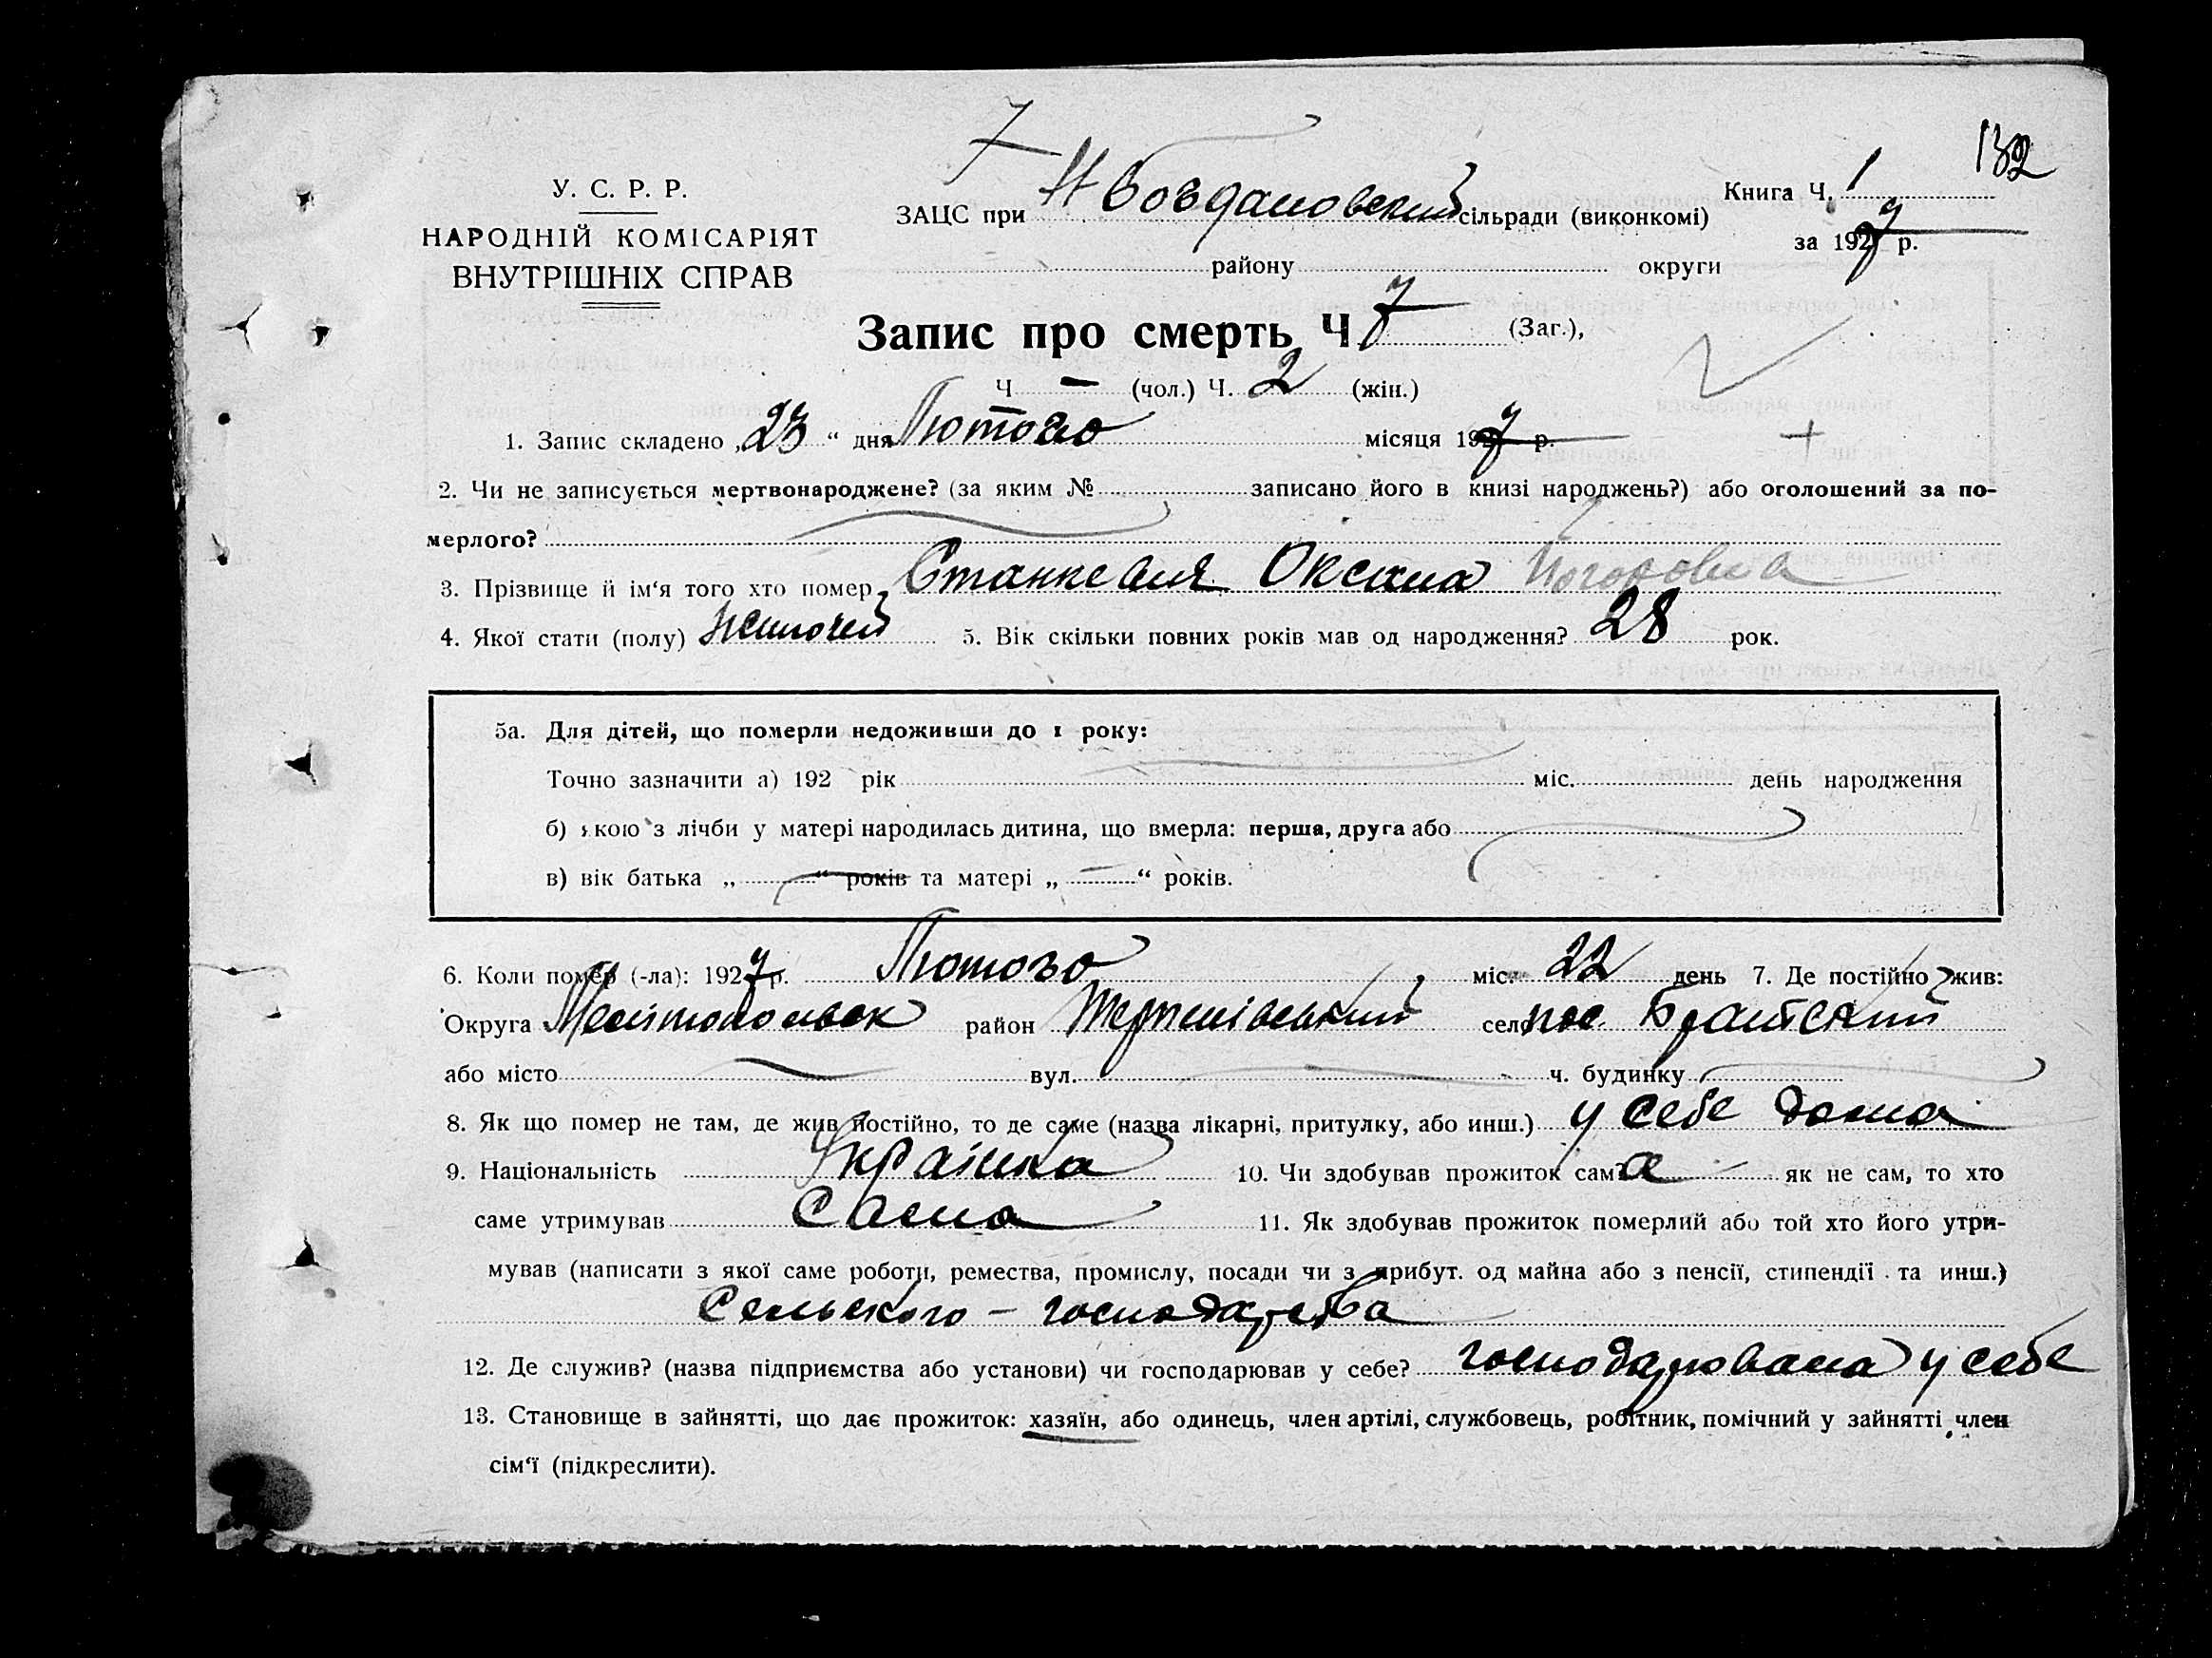 7
132
У. С. Р. Р.
НАРОДНІЙ КОМІСАРІЯТ
ВНУТРІШНІХ СПРАВ
ЗАЦС при Н Богдановский сільради (виконкомі)
району округи
Книга Ч. 1
за 1927 р.
Запис про смерть Ч 7 (Заг.),
Ч — (чол.) Ч. 2 (жін.)
1. Запис складено „23“ дня Лютого місяця 1927 р.
2. Чи не записується мертвонароджене? (за яким № записано його в книзі народжень?) або оголошений за по-
мерлого?
3. Прізвище й ім‘я того хто помер Оксана
4. Якої стати (полу) 5. Вік скільки повних років мав од народження? 28 рок.
5а. Для дітей, що померли недоживши до 1 року:
Точно зазначити а) 192 рік міс. день народження
б) якою з лічби у матері народилась дитина, що вмерла: перша, друга або
в) вік батька „ “ років та матері „ — “ років.
6. Коли помер (-ла): 1927 р. Лютого міс. 22 день 7. Де постійно жив:
Округа район село пос. Братский
або місто вул. ч. будинку
8. Як що помер не там, де жив постійно, то де саме (назва лікарні, притулку, або инш.) у себе дома
9. Національність Українка 10. Чи здобував прожиток сам а — як не сам, то хто
саме утримував Сама 11. Як здобував прожиток померлий або той хто його утри-
мував (написати з якої саме роботи, ремества, промислу, посади чи з прибут. од майна або з пенсії, стипендії та инш.)
Сельского - господарства
12. Де служив? (назва підприємства або установи) чи господарював у себе? господарювала у себе
13. Становище в зайнятті, що дає прожиток: хазяїн, або одинець, член артілі, службовець, робітник, помічний у зайнятті член
сім‘ї (підкреслити).